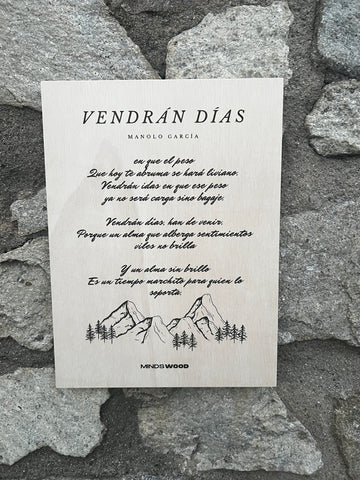 VENDRÁN DÍAS
MANOLO GARCÍA
en que el peso
Que hoy te abruma se hará liviano.
Vendrán idas en que ese peso
ya no será carga sino bagaje.
Vendrán días, han de venir.
Porque un alma que alberga sentimientos
viles no brilla
Y un alma sin brillo
Es un tiempo marchito para quien lo
soporta.
MINDSWOOD